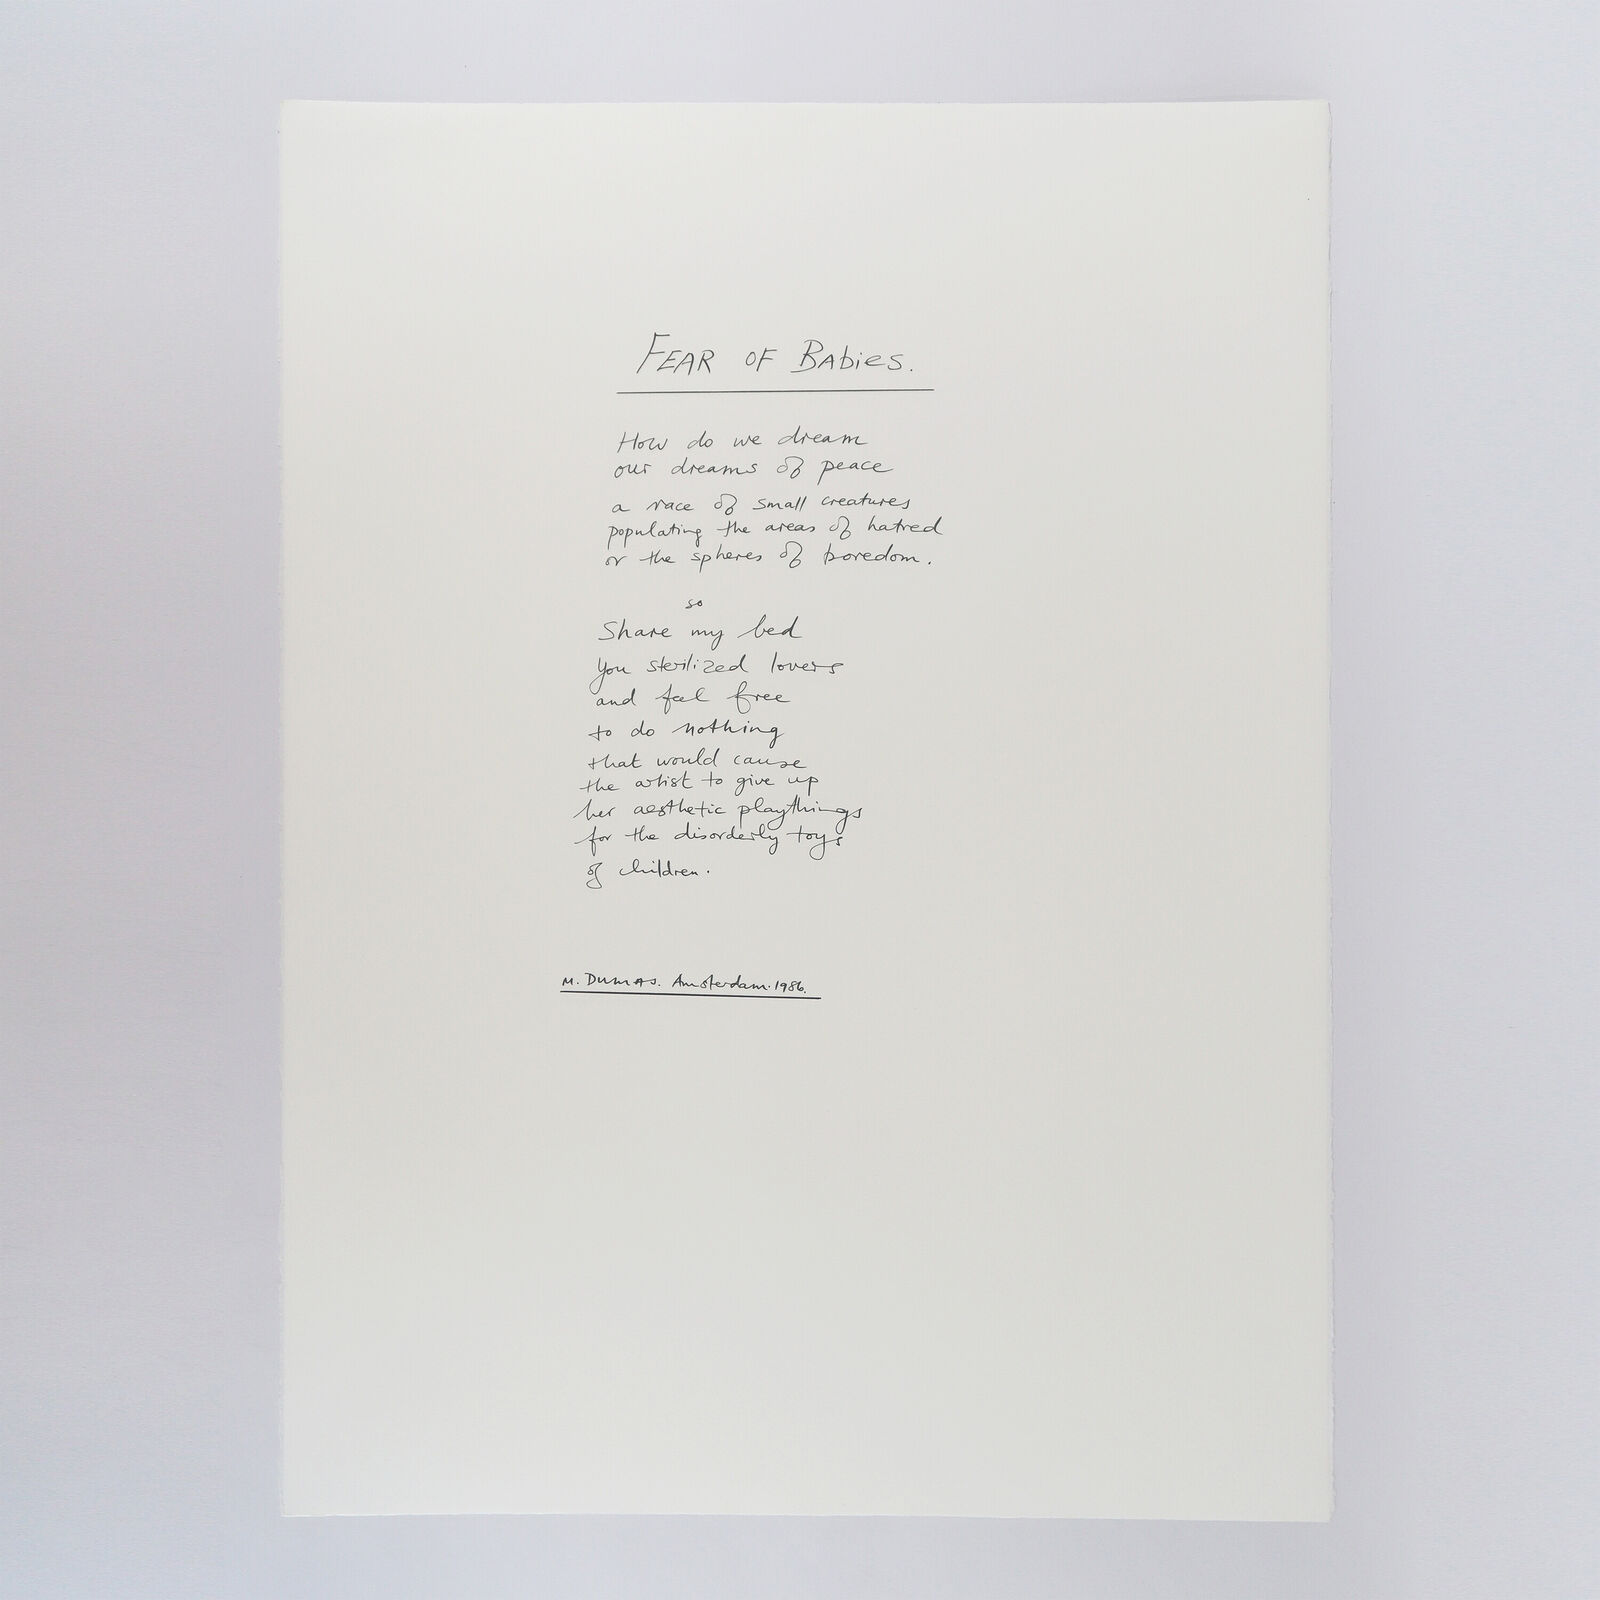 FEAR OF BAbies.
How do we dream
our dreams of peace
a race of small creatures
populating the areas of hatred
or the spheres of boredom.
so
Share my bed
you sterilized lovers
and feel free
to do nothing
that would cause
the artist to give up
her aesthetic playthings
for the disorderly toys
of children.
M. DumAs. Amsterdam. 1986.